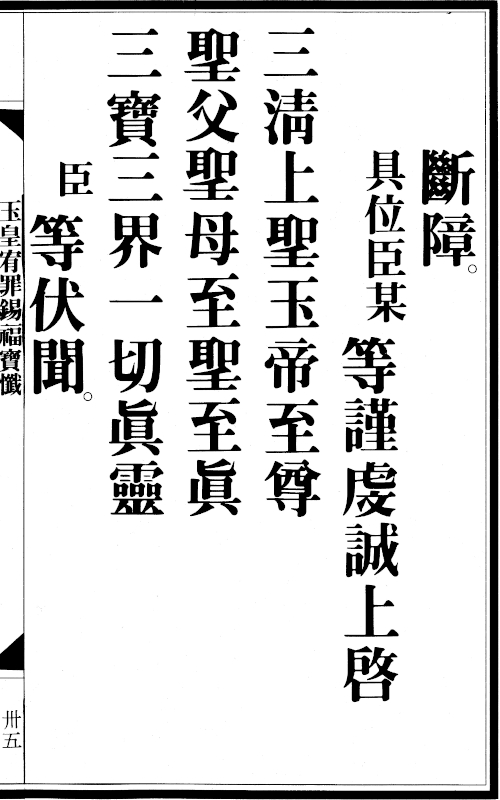 斷障。
具位臣某等謹虔誠上啓
三淸上聖玉帝至尊
聖父聖母至聖至眞
三寶三界一切眞靈
臣等伏聞。
玉皇宥罪錫福寶懺
卅五